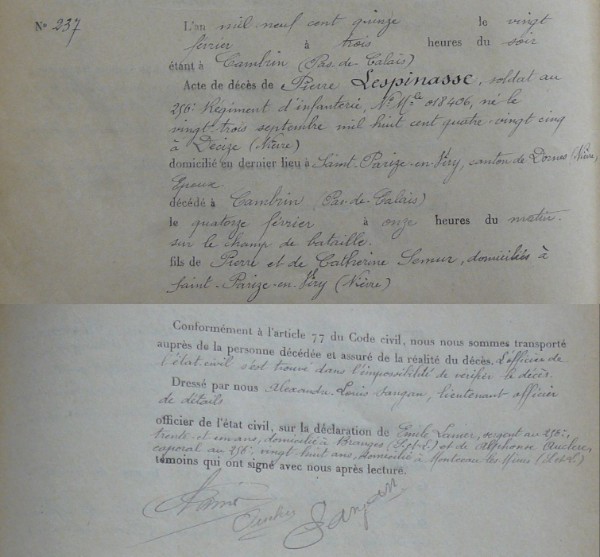 N° 237
L'an mil neuf cent quinze le vingt
février à trois heures du soir
étant à Cambrin (Pas-de-Calais)
Acte de décès de Pierre Lespinasse, soldat au
256e Régiment d'infanterie, No Mle 018406, né le
vingt trois septembre mil huit cent quatre-vingt cinq
à Decize (Nièvre)
domicilié en dernier lieu à Saint-Parize-en-Viry, canton de Dornes (Nièvre,
Epoux
décédé à Cambrin (Pas-de-Calais)
le quatorze février à onze heures du matin
sur le champ de bataille.
fils de Pierre et de Catherine Semur, domiciliés à
Saint-Parize-en-Viry (Nièvre)
Conformément à l'article 77 du Code civil, nous nous sommes transporté
auprès de la personne décédée et assuré de la réalité du décès. L'officier de
l'état civil s'est trouvé dans l'impossibilité de vérifier le décès.
Dressé par nous Alexandre Louis Sangan, lieutenant officier
de détails
officier de l'état civil, sur la déclaration de Emile Lamer, sergent au 256e,
trente et un ans, domicilié à Branges (S.et.L.) et de Alphonse Auclerc,
caporal au 256e, vingt huit ans, domicilié à Montceau les Mines (S.et.L.)
témoins qui ont signé avec nous après lecture.
Sangan